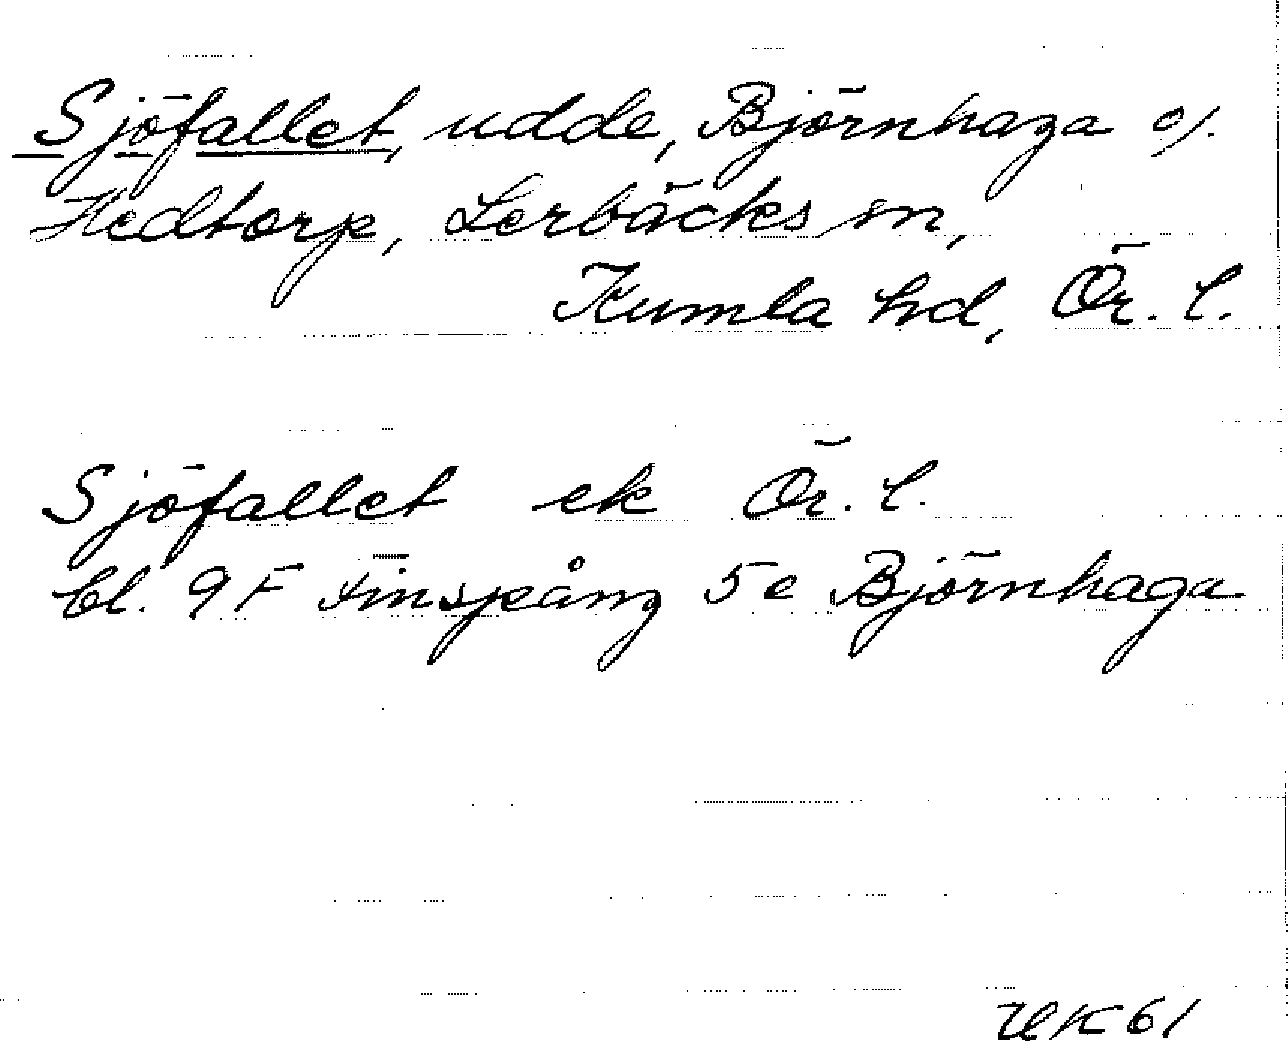 Sjöfallet, udde, Björnhaga o/.
Hedtorp, Lerbäcks sn,
Kumla hd, Ör. l.
Sjöfallet ek Ör. l.
bl. 9F Finspång 5e Björnhaga
UK61